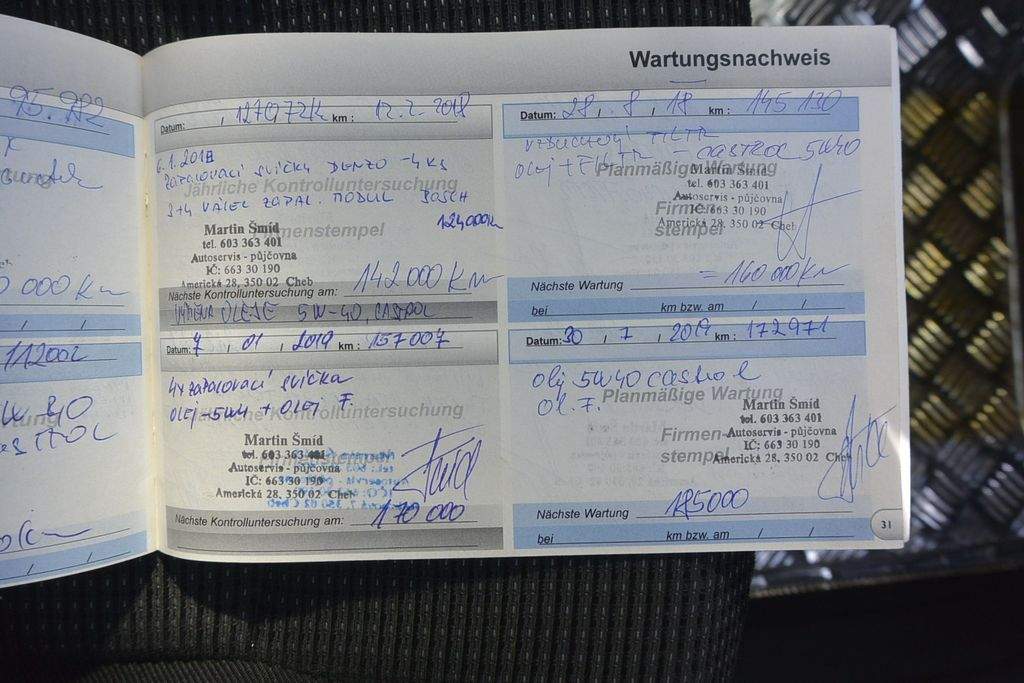 95.982
000 Km
/ /
112000
W 40
/ /
Wartungsnachweis
Datum: , 127972k km : 12.2.2018
6.1.2018
ZAPALOVACÍ SVÍČKY DENZO - 4 KS
Jährliche Kontrolluntersuchung
3+4 VÁLEC ZAPAL. MODUL BOSCH
124000km
Firmenstempel
Martin Šmíd
tel. 603 363 401
Autoservis - půjčovna
IČ: 663 30 190
Americká 28, 350 02 Cheb
Nächste Kontrolluntersuchung am: 142 000 Km
VÝMĚNA OLEJE 5W-40, CASTROL
Datum: 28 . 8 , 18 km : 145 130
VZDUCHOVÝ FILTR
Olej + FILTR - CASTROL 5W40
Planmäßige Wartung
Firmen-
stempel
Martin Šmíd
tel. 603 363 401
Autoservis - půjčovna
IČ: 663 30 190
Americká 28, 350 02 Cheb
Nächste Wartung = 160 000 Km
bei km bzw. am / /
Datum: 7 , 01 , 2019 km : 157007
4x zapalovací svíčka
OLEJ - 5W4 + OLEJ F.
Jährliche Kontrolluntersuchung
Firmenstempel
Martin Šmíd
tel. 603 363 401
Autoservis - půjčovna
IČ: 663 30 190
Americká 28, 350 02 Cheb
Nächste Kontrolluntersuchung am: 170 000
Datum: 30 , 7 , 2019 km : 172971
Olj 5W40 castrol
Ol. F.
Planmäßige Wartung
Firmen-
stempel
Martin Šmíd
tel. 603 363 401
Autoservis - půjčovna
IČ: 663 30 190
Americká 28, 350 02 Cheb
Nächste Wartung 185000
bei km bzw. am / /
31